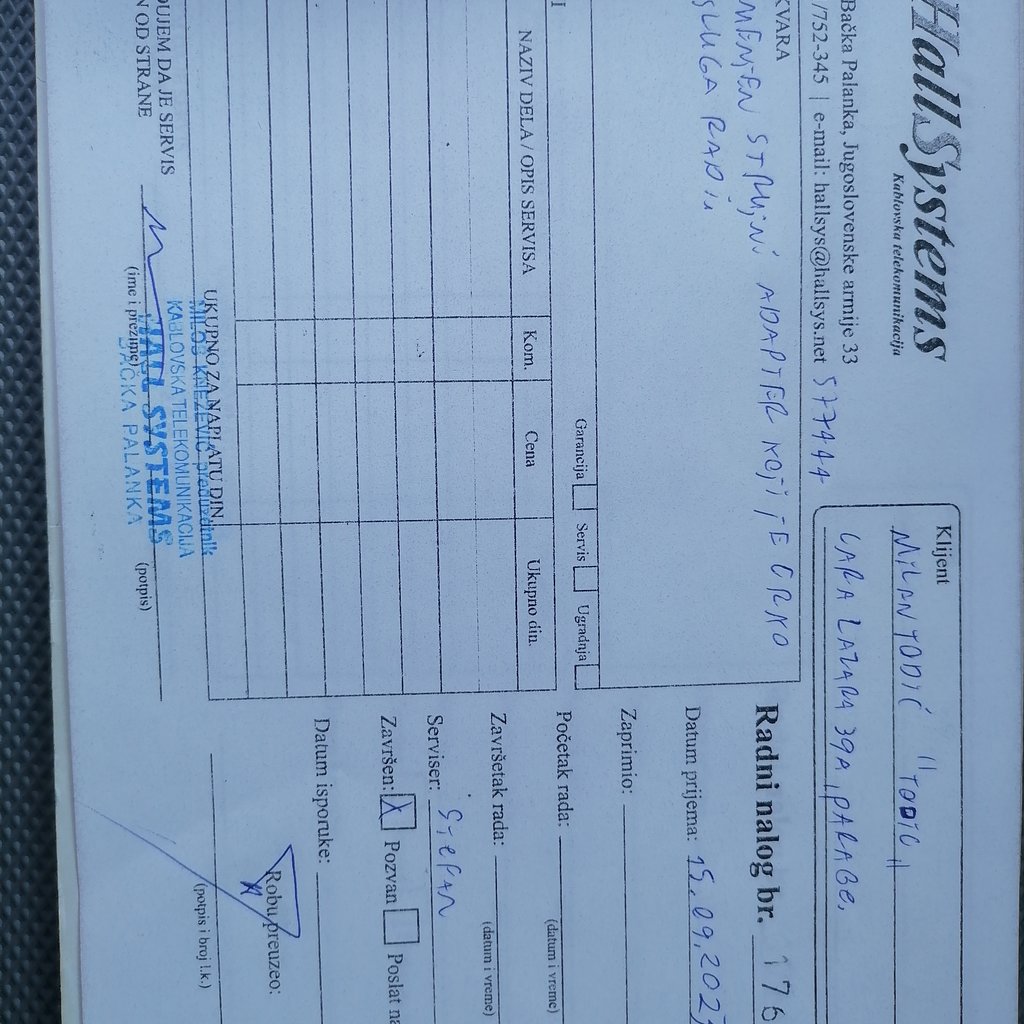 HallSystems
Kablovska telekomunikacija
Bačka Palanka, Jugoslovenske armije 33
/752-345 | e-mail: hallsys@hallsys.net
577444
Klijent
MILAN TODIĆ "TODIĆ"
CARA LAZARA 39A, PARAGE,
KVARA
MENJEN STRUJNI ADAPTER KOJI JE CRKO
SLUGA RADI
Garancija Servis Ugradnja
NAZIV DELA / OPIS SERVISA Kom. Cena Ukupno din.
UKUPNO ZA NAPLATU DIN.
UJEM DA JE SERVIS
N OD STRANE
(ime i prezime) (potpis)
MILOŠ KNEŽEVIĆ preduzetnik
KABLOVSKA TELEKOMUNIKACIJA
HALL SYSTEMS
BAČKA PALANKA
Radni nalog br. 176
Datum prijema: 15.09.202
Zaprimio:
Početak rada:
(datum i vreme)
Završetak rada:
(datum i vreme)
Serviser: STEFAN
Završen: X Pozvan Poslat na
Datum isporuke:
Robu preuzeo:
(potpis i broj l.k.)